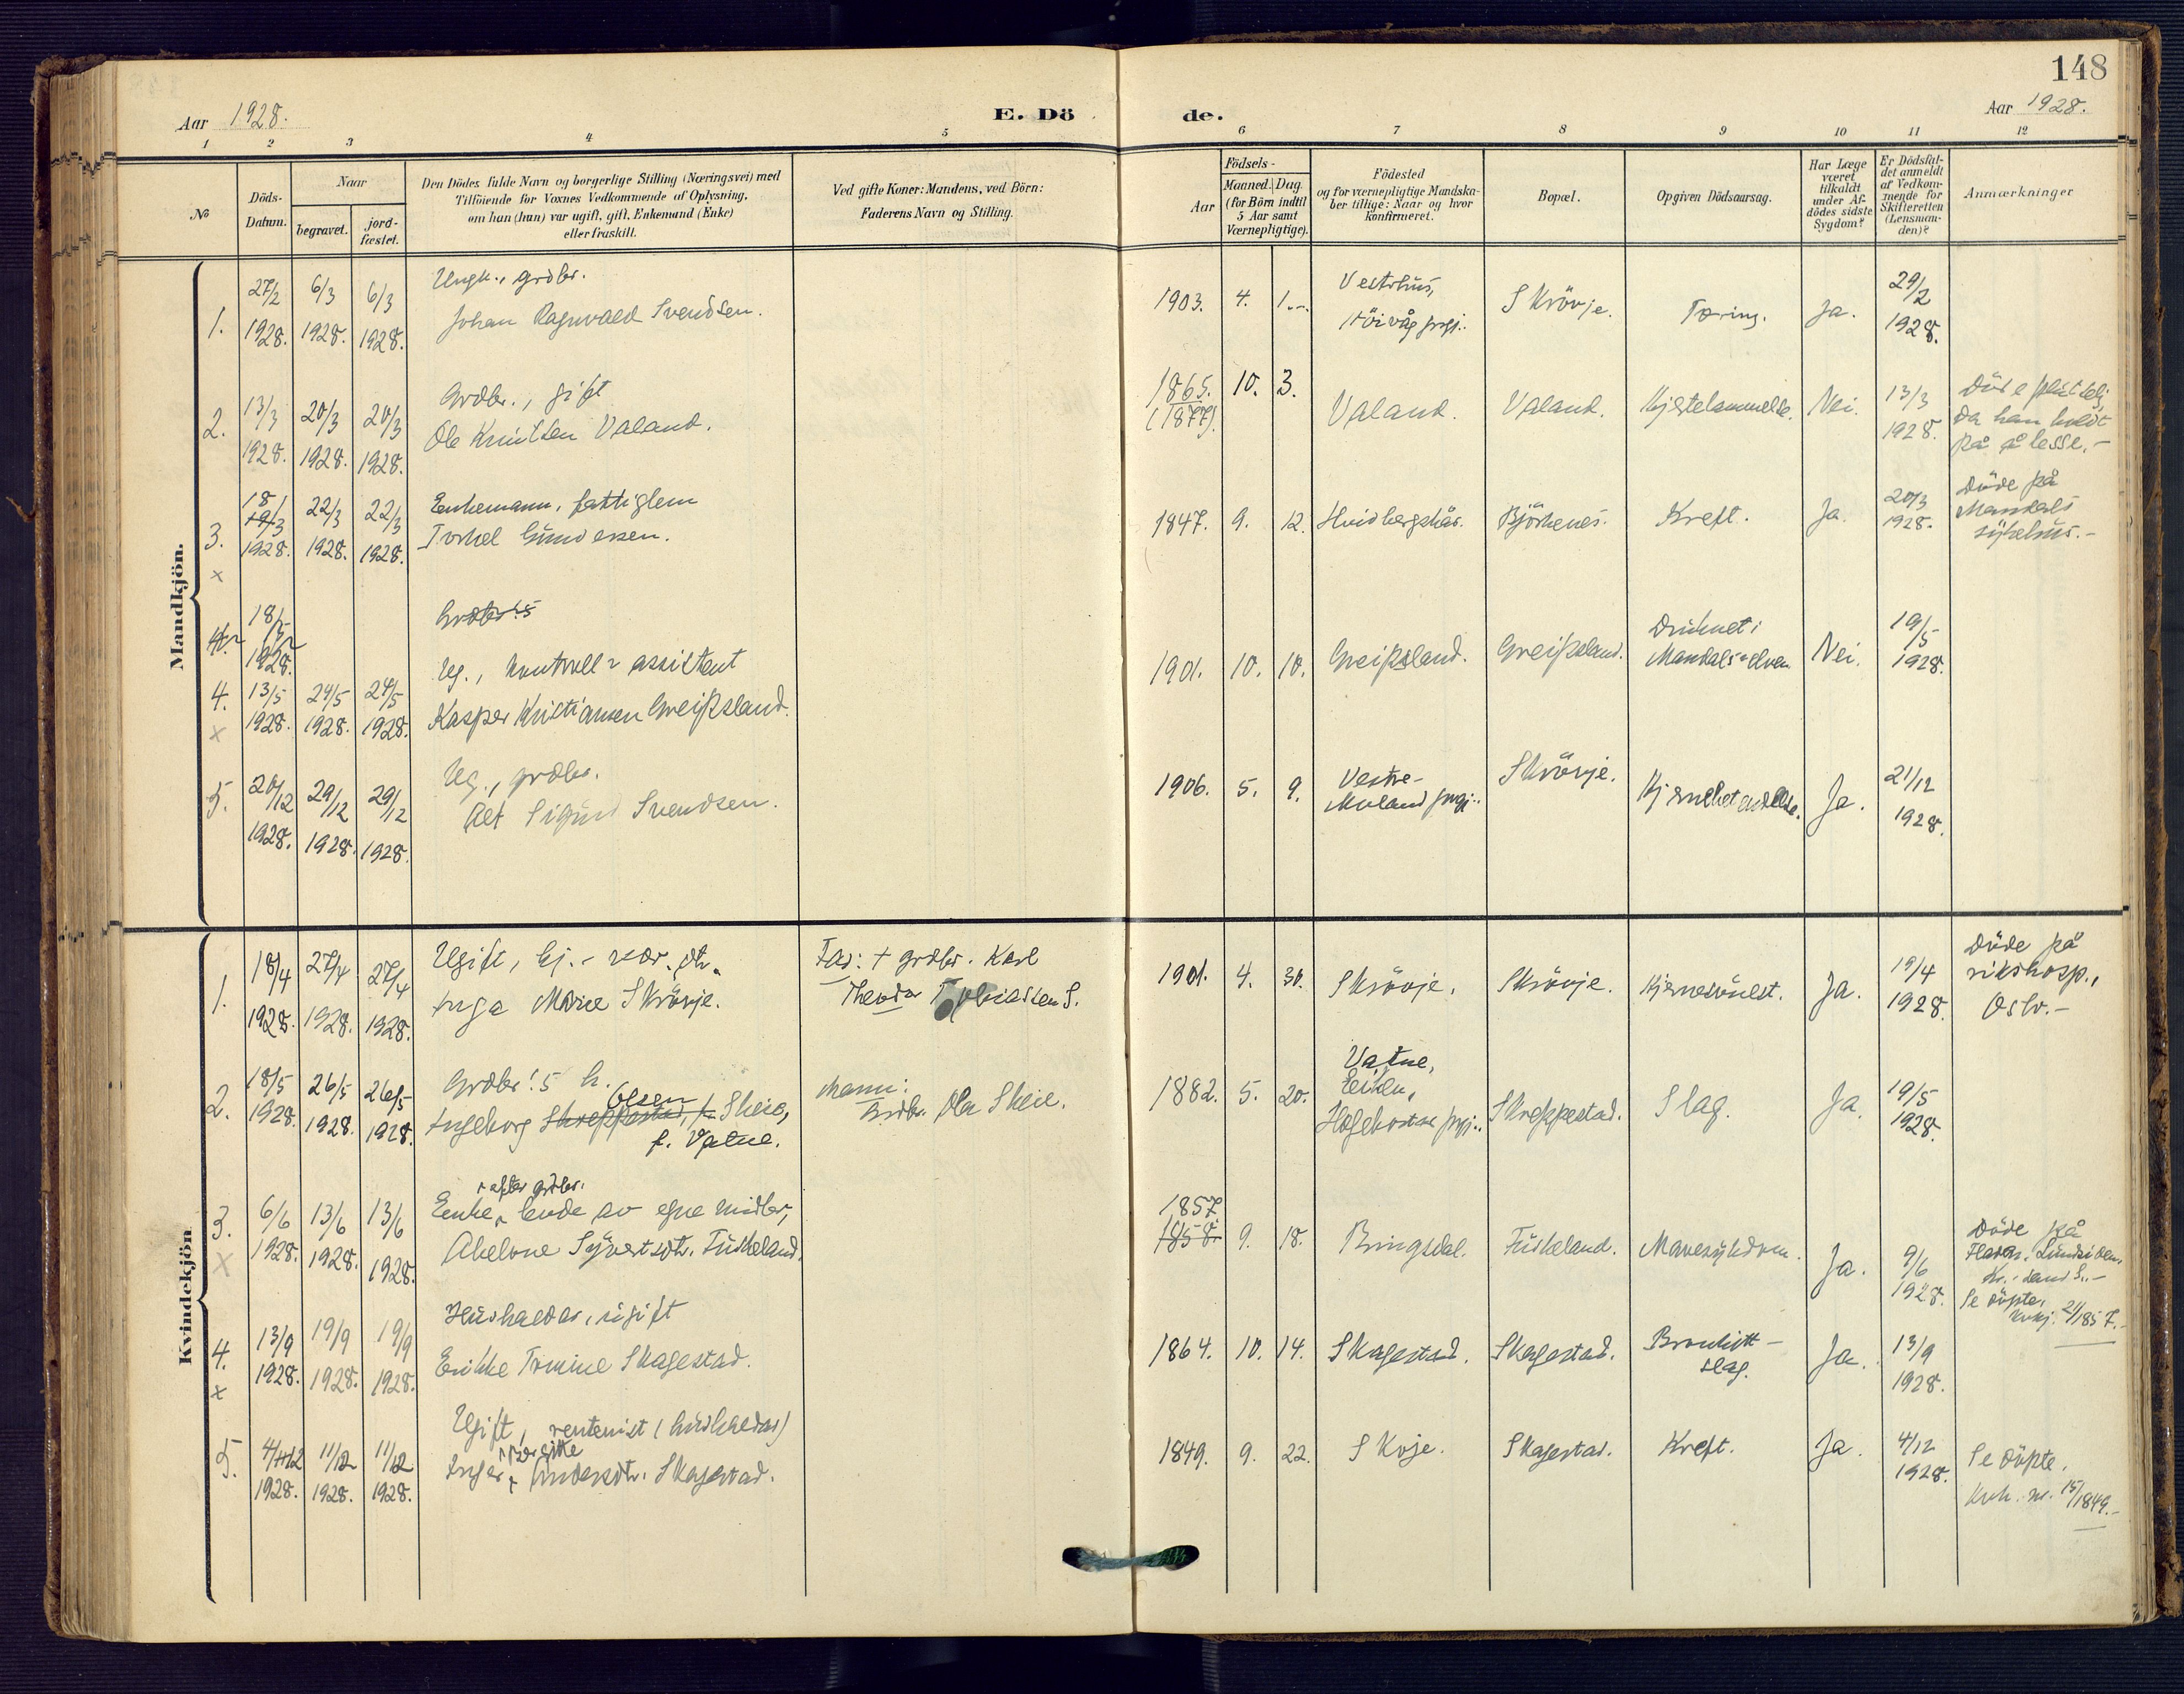 148
Aar 1928.
E. Dö
de.
Aar 1928.
1 2 3 4 5 6 7 8 9 10 11 12
№
Döds-
Datum.
Naar
begravet.
jord-
fæstet.
Den Dödes fulde Navn og borgerlige Stilling (Næringsvei) med
Tilföiende for Voxnes Vedkommende af Oplysning,
om han (hun) var ugift, gift, Enkemand (Enke)
eller fraskilt.
Ved gifte Koner: Mandens, ved Börn:
Faderens Navn og Stilling.
Födsels-
Aar
Maaned. Dag.
(for Börn indtil
5 Aar samt
Værnepligtige).
Födested
og for værnepligtige Mandska-
ber tillige: Naar og hvor
konfirmeret.
Bopæl.
Opgiven Dödsaarsag.
Har Læge
været
tilkaldt
under Af-
dödes sidste
Sygdom?
Er Dödsfal-
det anmeldt
af Vedkom-
mende for
Skifteretten
(Lensman-
den)?
Anmærkninger
Mandkjön.
1.
27/2 1928.
6/3 1928.
6/3 1928.
Ungk., grdbr.
Johan Ragnvald Svendsen.
1903. 4. 1.
Vestrhus,
Höivåg prgj.
Skrövje.
Tæring.
Ja.
29/2 1928.
2.
13/3 1928.
20/3 1928.
20/3 1928.
Grdbr., gift
Ole Knutsen Valand.
1865. 10. 3.
(1877).
Valand.
Valand.
Hjertelammelse.
Nei.
13/3 1928.
Döde plutselig
da han holdt
på å lesse.-
3.
x
18/3 1928.
22/3 1928.
22/3 1928.
Enkemann, fattiglem
Torkel Gundersen.
1847. 9. 12.
Hvidbergskår.
Björkenes.
Kreft.
Ja.
20/3 1928.
Döde på
Mandals
sykehus.-
18/5 1928.
Grdbr's
4.
x
13/5 1928.
24/5 1928.
24/5 1928.
Ug., kontroll-assistent
Kasper Kristiansen Greipsland.
1901. 10. 10.
Greipsland.
Greipsland.
Druknet i
Mandals-elven
Nei.
19/5 1928.
5.
20/12 1928.
29/12 1928.
29/12 1928.
Ug., grdbr.
Alf Sigurd Svendsen.
1906. 5. 9.
Vestre-
Moland prgj.
Skrövje.
Hjernebetendelse.
Ja.
21/12 1928.
Kvindekjön
1.
18/4 1928.
27/4 1928.
27/4 1928.
Ugift,
Inga Marie Skrövje.
Far: + grdbr. Karl
Theodor Tobiassen S.
1901. 4. 30.
Skrövje.
Skrövje.
Hjernesvulst.
Ja.
19/4 1928.
Döde på
rikshosp.,
Oslo.-
2.
18/5 1928.
26/5 1928.
26/5 1928.
Grdbr's h.
Olsen
Ingeborg Skreppestad, f. Skeie,
f. Vatne.
Mann:
Grdbr. Ola Skeie.
1882. 5. 20.
Vatne,
Eiken,
Hægebostad prgj.
Skreppestad.
Slag.
Ja.
19/5 1928.
3.
x
6/6 1928.
13/6 1928.
13/6 1928.
efter grdbr.
Enke, levde av egne midler,
Abelone Syvertsdtr. Fuskeland.
1857
1858. 9. 18.
Bringsdal.
Fuskeland.
Mavesykdom.
Ja.
9/6 1928.
Döde på
Kr.-sand S.-
Se döpte,
kvkj. 21/1857.-
4.
x
13/9 1928.
19/9 1928.
19/9 1928.
Husholder, ugift
Erikke Tomine Skagestad.
1864. 10. 14.
Skagestad.
Skagestad.
Bronkitt-
slag.
Ja.
13/9 1928.
5.
4/12 1928.
11/12 1928.
11/12 1928.
Ugift, rentenist (husholder)
Birgitte
Inger Andersdtr. Skagestad.
1849. 9. 22.
Skoje.
Skagestad.
Kreft.
Ja.
4/12 1928.
Se döpte,
kvk. nr. 15/1849.-